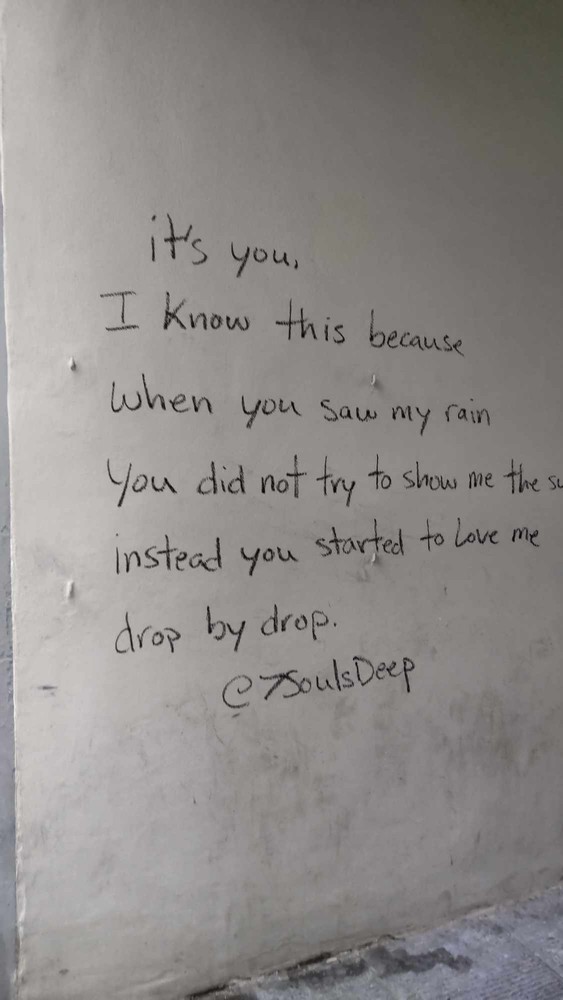 it's you,
I know this because
when you saw my rain
You did not try to show me the
instead you started to love me
drop by drop.
@7SoulsDeep